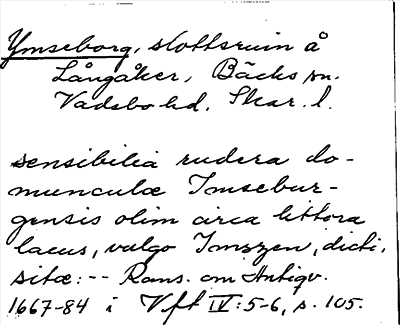 Ymseborg, slottsruin å
Långåker, Bäcks sn.
Vadsbo hd. Skar. l.
sensibilia rudera do-
munculæ Imsebur-
gensis olim circa littora
lacus, vulgo Imszen, dicti,
sitæ: -- Rans. om Antiqv.
1667-84 i Vft IV: 5-6, s. 105.